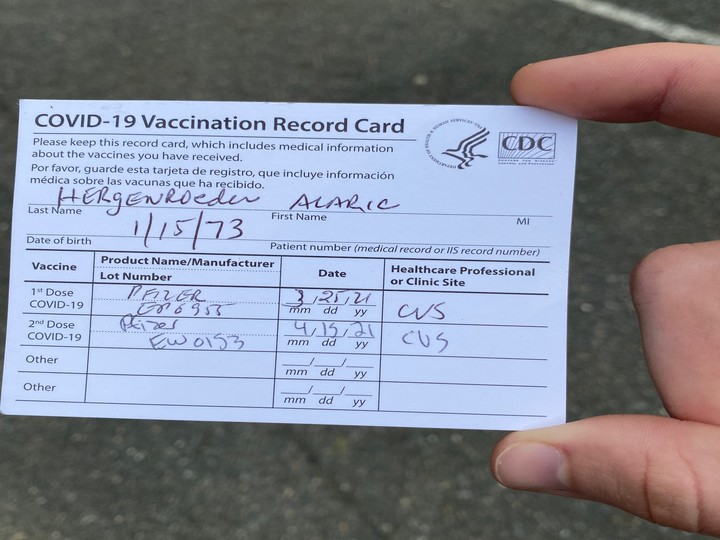 COVID-19 Vaccination Record Card
CDC
Please keep this record card, which includes medical information
about the vaccines you have received.
Por favor, guarde esta tarjeta de registro, que incluye información
médica sobre las vacunas que ha recibido.
HERGENROEDER ALARIC
Last Name First Name MI
1/15/73
Date of birth Patient number (medical record or IIS record number)
Vaccine Product Name/Manufacturer Date Healthcare Professional
Lot Number or Clinic Site
1st Dose PFIZER 3/25/21 CVS
COVID-19 mm dd yy
2nd Dose Pfizer 4/15/21 CVS
COVID-19 EW0153 mm dd yy
Other __/__/__
mm dd yy
Other __/__/__
mm dd yy